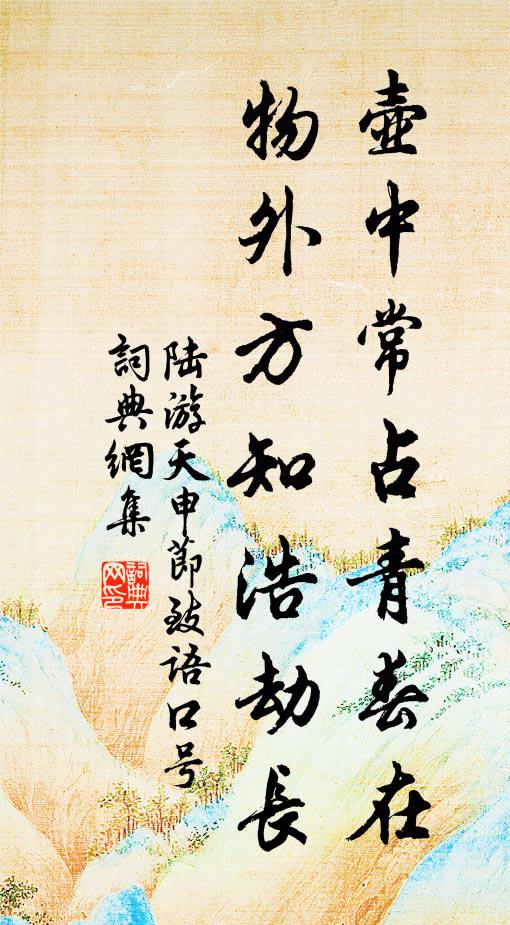 壺中常占青春在
物外方知浩劫長
陆游天申節致語口号
詞典網集
詞典网印